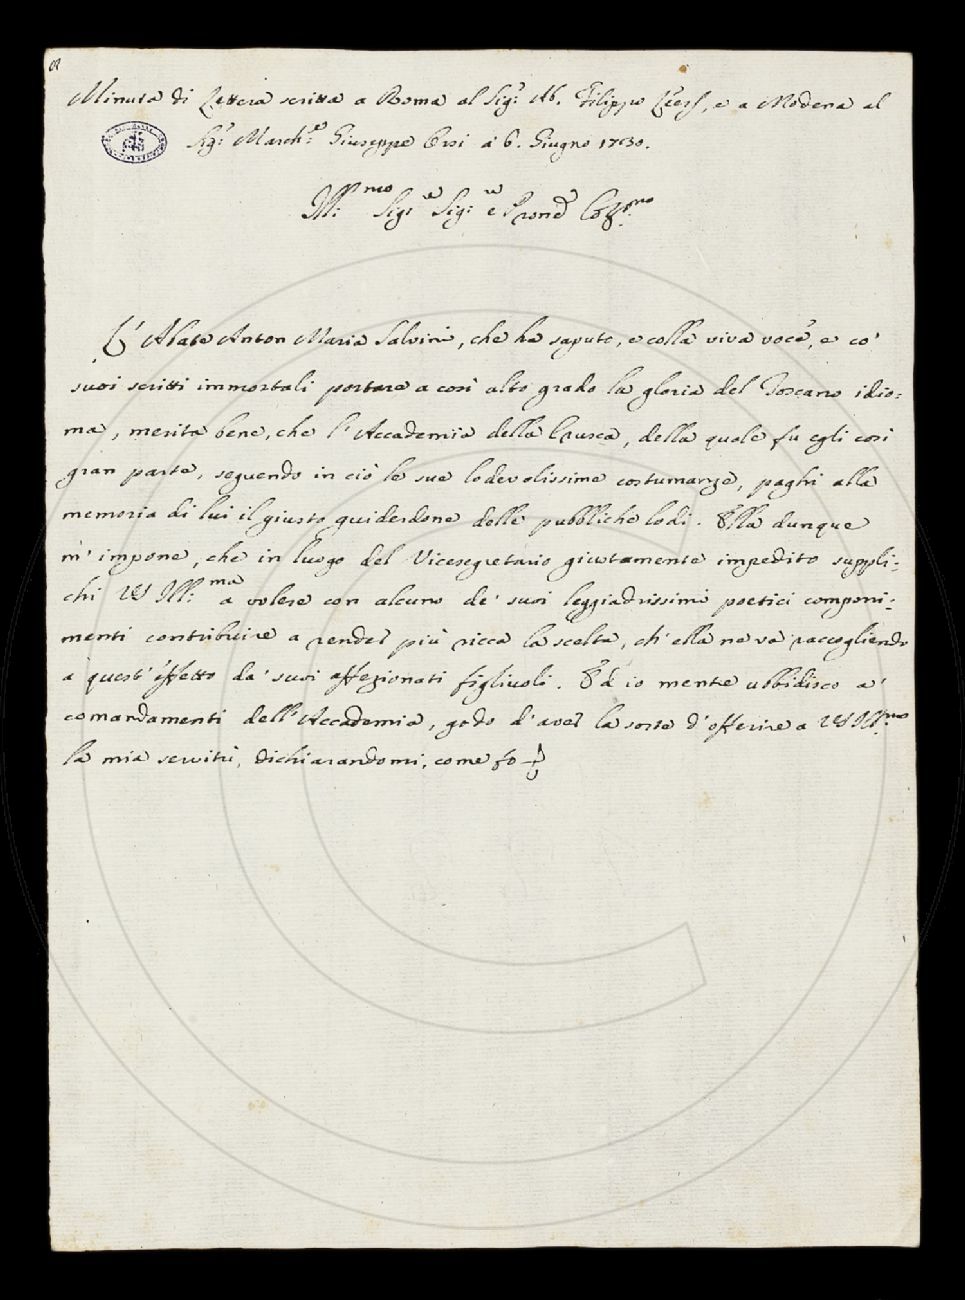 Minuta di Lettera scritta a Roma al Sig.r Ab. Filippo Leers, e a Modena al
Sig.r March.e Giuseppe Orsi a' 6. Giugno 1730.
Ill.mo Sig.re Sig.re e Pron̄e Col.mo
L'Abate Anton Maria Salvini, che ha saputo, e colla viva voce, e co'
suoi scritti immortali portare a così alto grado la gloria del Toscano idio:
ma, merita bene, che l'Accademia della Crusca, della quale fu egli così
gran parte, seguendo in ciò le sue lodevolissime costumanze, paghi alla
memoria di lui il giusto guiderdone delle pubbliche lodi. Ella dunque
m'impone, che in luogo del Vicesegretario giustamente impedito suppli:
chi VS Ill.ma a volere con alcuno de' suoi leggiadrissimi poetici componi:
menti contribuire a render più ricca la scelta, ch'ella ne va raccogliendo
a quest'effetto da' suoi affezionati figliuoli. Ed io mentre ubbidisco a'
comandamenti dell'Accademia, godo d'aver la sorte d'offerire a VS Ill.ma
la mia servitù, dichiarandomi, come fo